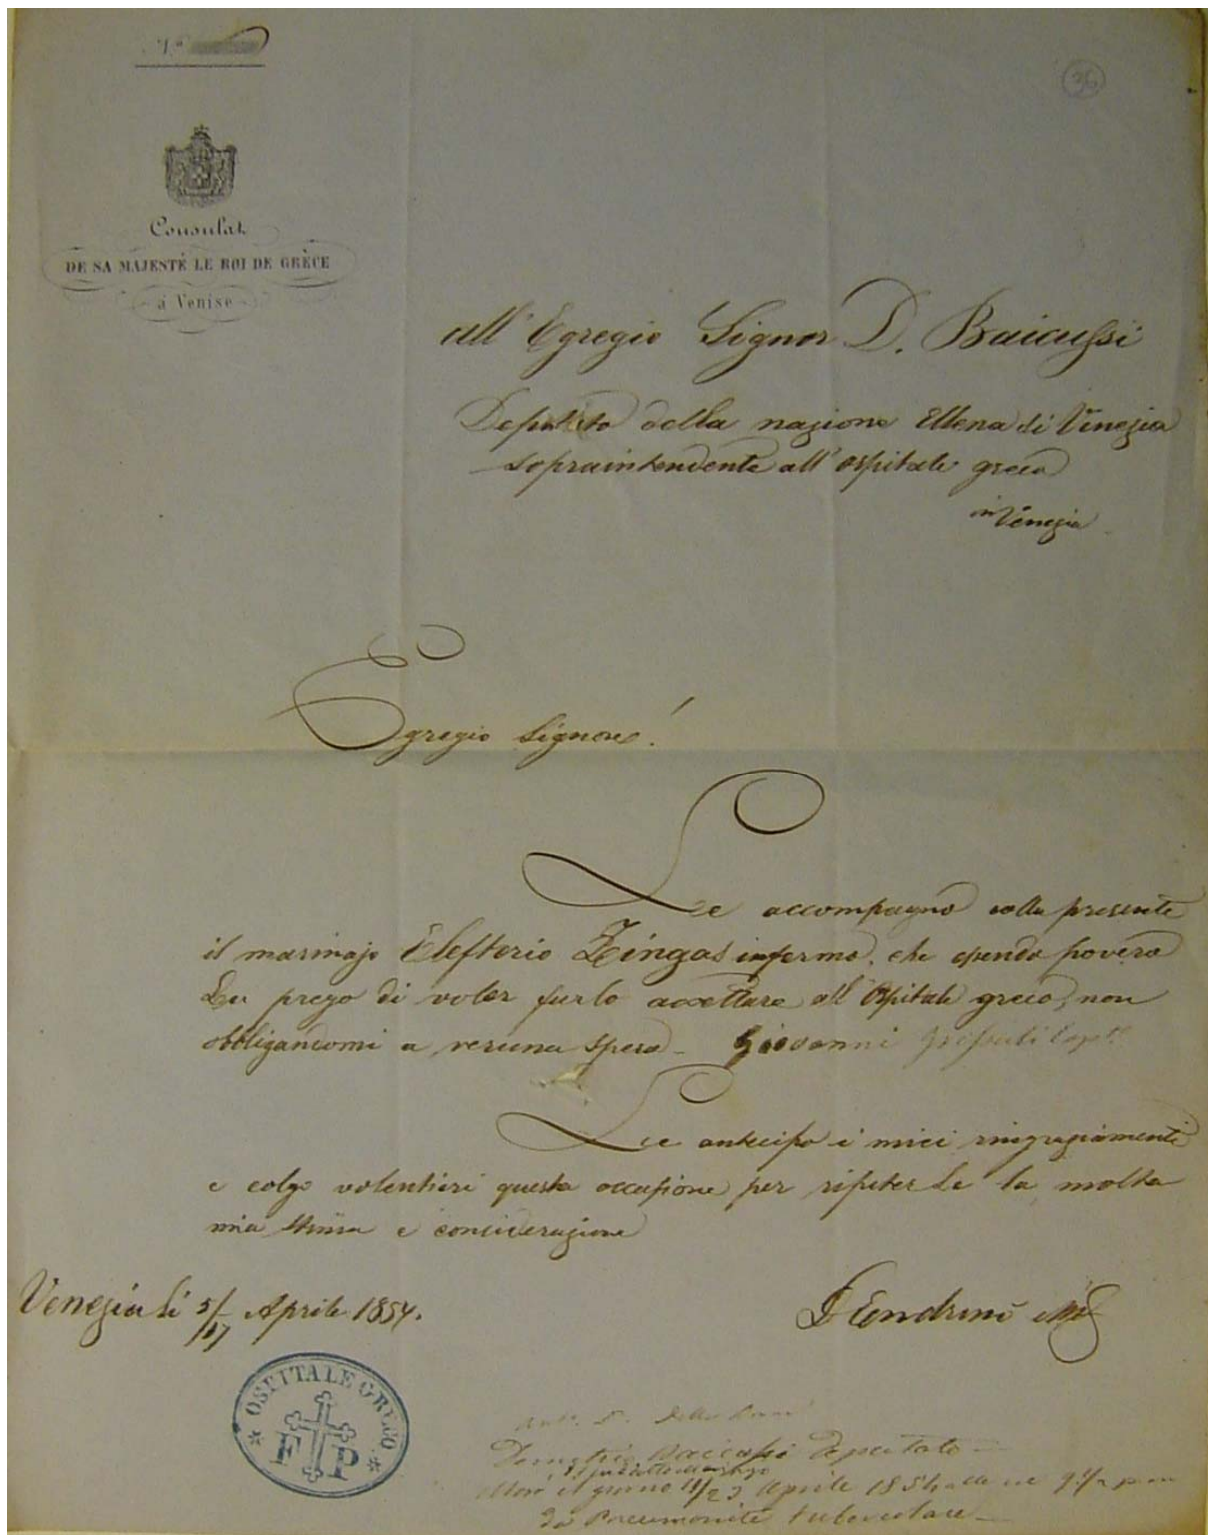 N°
36
Consulat
DE SA MAJESTÉ LE ROI DE GRÈCE
à Venise
all' Egregio Signor D. Baicussi
Deputato della nazione Ellena di Venezia
sopraintendente all' ospitale greco
in Venezia
Egregio Signore!
Le accompagno colla presente
il marinajo Elefterio Zingas infermo, che essendo povero
La prego di voler farlo accettare all' Ospitale greco, non
obbligandomi a veruna spesa - Giovanni
Le antecipo i miei ringraziamenti
e colgo volentieri questa occasione per ripeterLe la molta
mia stima e considerazione
Venezia li 5/17 Aprile 1854.
OSPITALE GRECO
F P
Deputato
Morì il giorno 11/23 Aprile 1854
da Pneumonite tubercolare